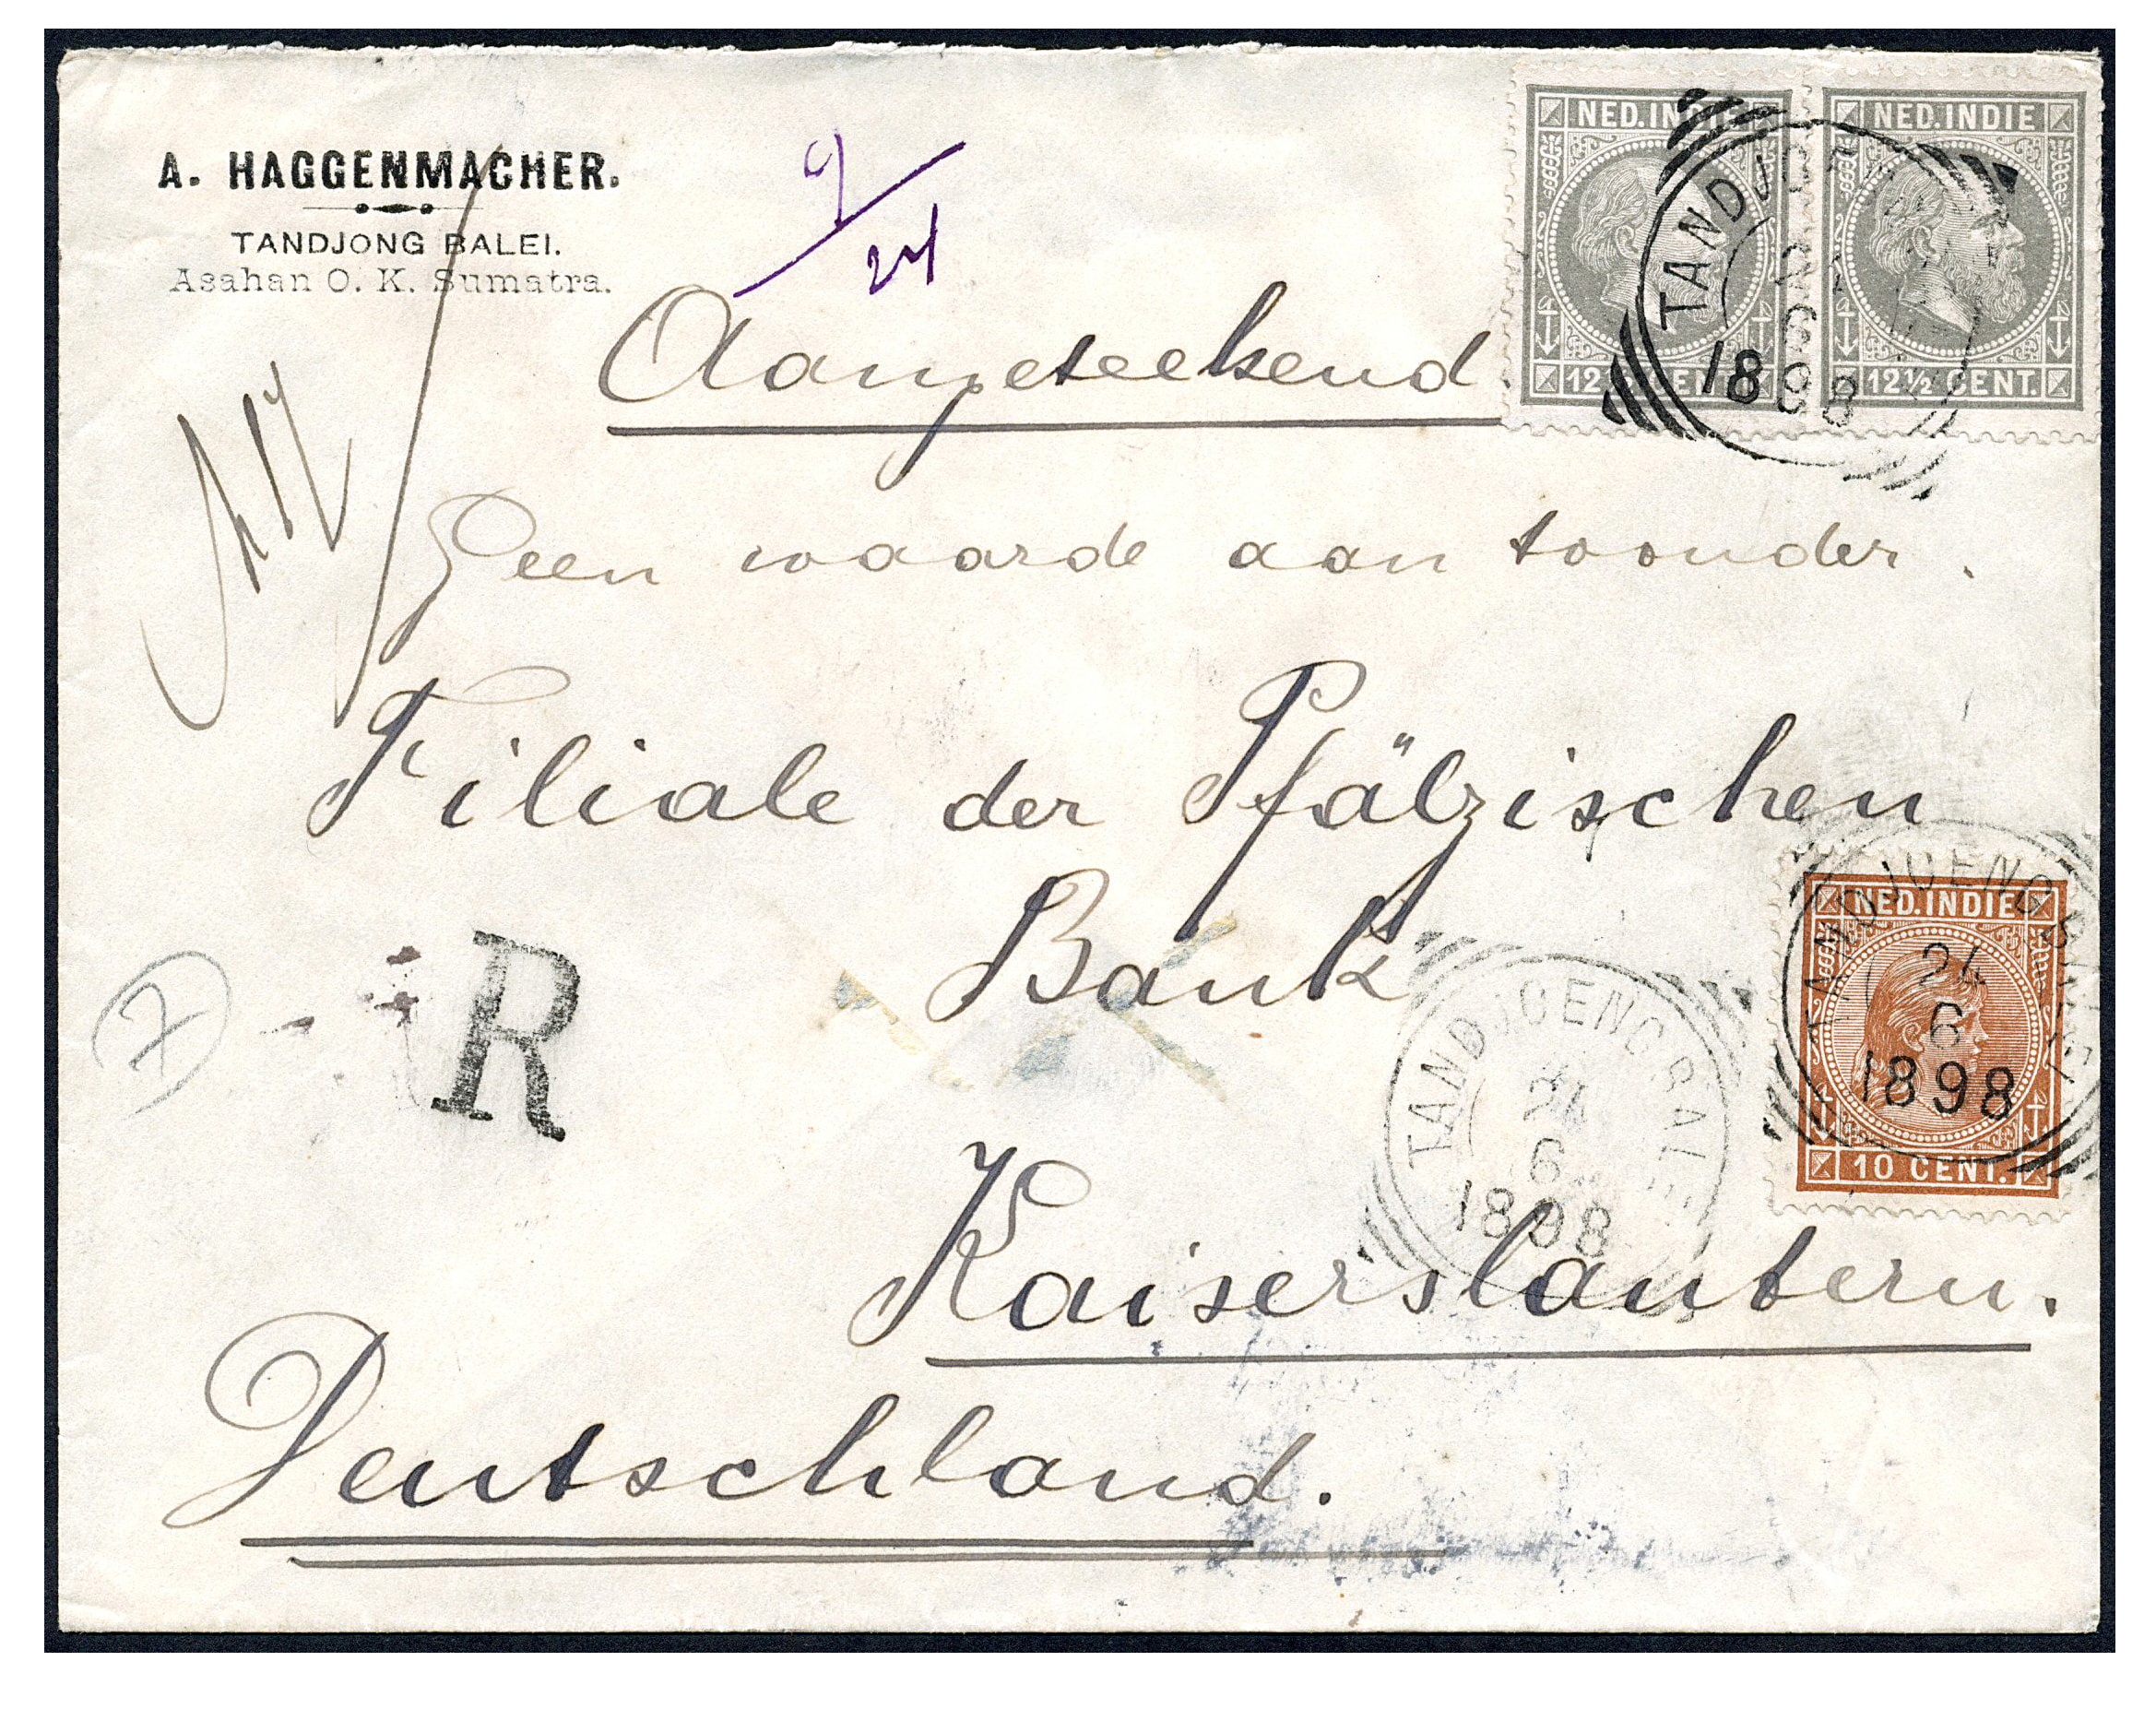 A. HAGGENMACHER.
TANDJONG BALEI.
Asahan O. K. Sumatra.
9/24
NED. INDIE
12½ CENT.
NED. INDIE
12½ CENT.
TANDJOENG BALEI
24
6
1898
Aangeteekend.
Geen waarde aan toonder.
Filiale der Pfälzischen
Bank
Kaiserslautern.
Deutschland.
7
R
TANDJOENG BALEI
24
6
1898
NED. INDIE
10 CENT.
TANDJOENG BALEI
24
6
1898